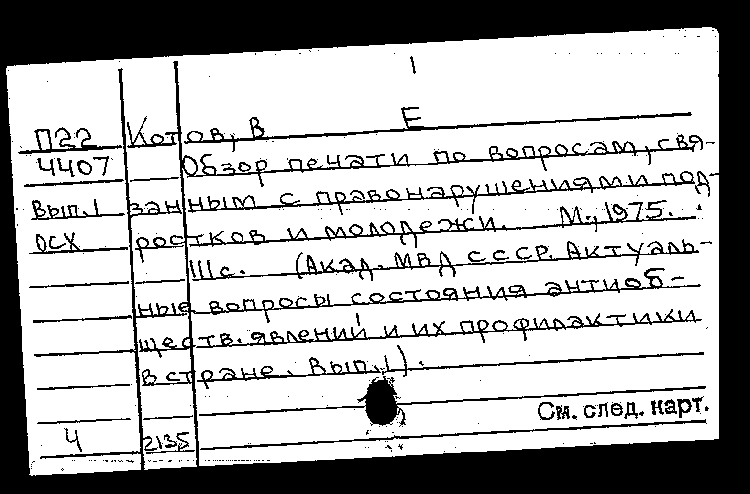 1
П22 Котов, В Е
4407 Обзор печати по вопросам, свя-
Вып.1 занным с правонарушениями под-
ОСХ ростков и молодежи. М., 1975.
111с. (Акад. МВД СССР. Актуаль-
ные вопросы состояния антиоб-
ществ. явлений и их профилактики
в стране. Вып.1).
См. след. карт.
4 2135